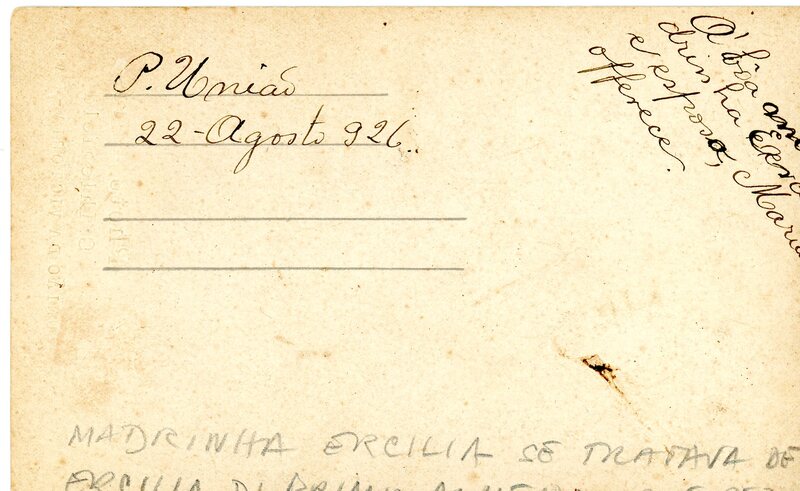 P. União
22-Agosto 926.
A' bôa am
drinha
e esposo, Maria
offerece.
MADRINHA ERCILIA SE TRATAVA DE
ERCILIA DI PRIMO